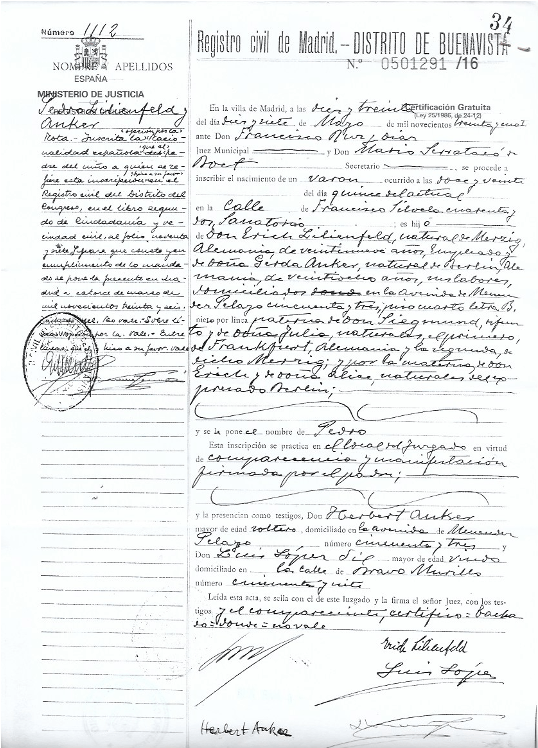 34
Número 1112
NOMBRE APELLIDOS
ESPAÑA
MINISTERIO DE JUSTICIA
Pedro Lilienfeld y
Anker
Nota = Inscrita la nacio-
nalidad española del pa-
dre del niño a quien se re-
fiere esta inscripción en el
Registro civil del Distrito del
Congreso, en el libro segun-
do de Ciudadanía y ve-
cindad civil al folio noventa
y siete y para que conste y en
cumplimiento de lo manda-
do se pone la presente en Ma-
drid a catorce de marzo de
mil novecientos treinta y seis
Registro civil de Madrid.- DISTRITO DE BUENAVISTA
N.º 0501291 /16
Certificación Gratuita
(Ley 25/1986, de 24-12)
En la villa de Madrid, a las diez y treinta
del día diez y siete de Mayo de mil novecientos treinta y uno
ante Don Francisco Ruiz
Juez Municipal y Don Mario Serratacó
Secretario se procede a
inscribir el nacimiento de un varon ocurrido a las doce y veinte
del día quince del actual
en la Calle de Francisco Silvela cuarenta y
dos, Sanatorio es hijo
de Don Erich Lilienfeld, natural de Merzig,
Alemania de veintinueve años, Empleado y
de doña Gerda Anker, natural de Berlín, Ale-
mania, de veintiocho años, sus labores,
domiciliados en la avenida de Menen-
dez Pelayo cincuenta y tres, piso cuarto letra B.
nieto por línea paterna de don Siegmund, difun-
to y de doña Julia, naturales, el primero,
de Frankfurt, Alemania y la segunda, de
dicho Merzig; y por la materna, de don
Erich y de doña Alice, naturales del ex-
presado Berlín;
y se le pone el nombre de Pedro
Esta inscripción se practica en el local del Juzgado en virtud
de comparecencia y manifestación
firmada por el padre;
y la presencian como testigos, Don Herbert Anker
mayor de edad soltero, domiciliado en la avenida de Menendez
Pelayo número cincuenta y tres y
Don Luis López mayor de edad viudo
domiciliado en la calle de Bravo Murillo
número cincuenta y siete
Leída esta acta, se sella con el de este Juzgado y la firma el señor Juez, con los tes-
tigos y el compareciente, certifico = tacha
do = donde = no vale
Erich Lilienfeld
Luis López
Herbert Anker